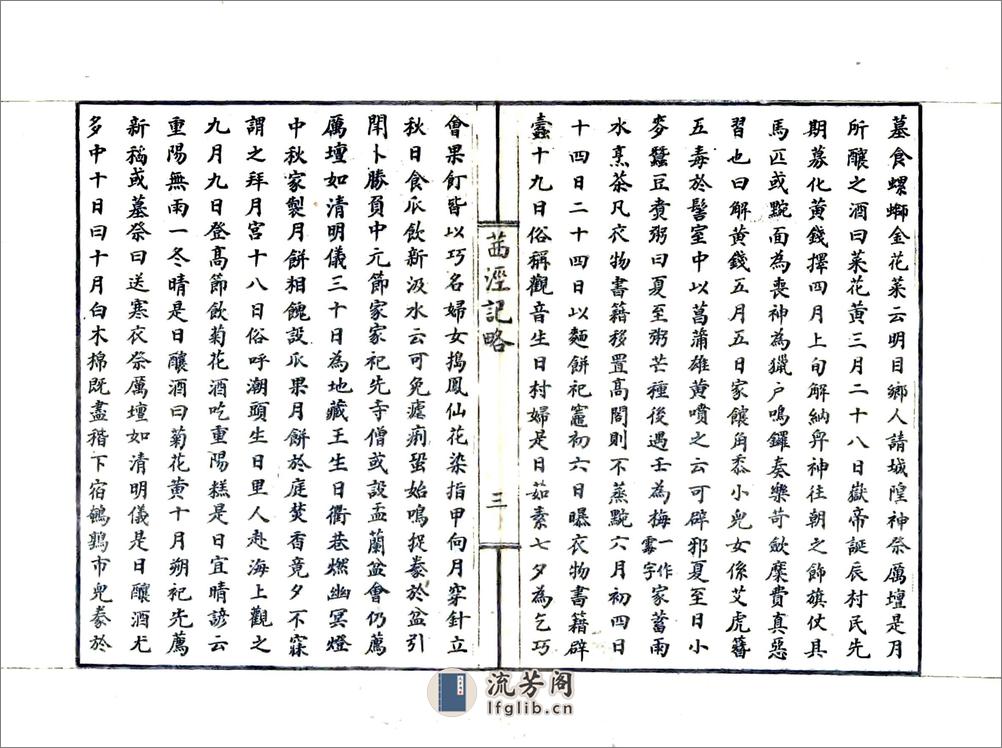 墓食螺螄金花菜云明目鄉人請城隍神祭厲壇是月
所釀之酒曰菜花黃三月二十八日嶽帝誕辰村民先
期募化黃錢擇四月上旬解納舁神往朝之飾旗仗具
馬匹或黥面為喪神為獵户鳴鑼奏樂苛斂糜費真惡
習也曰解黃錢五月五日家饟角黍小兒女係艾虎簪
五毒於髻室中以菖蒲雄黃噴之云可辟邪夏至日小
麥蠶豆煑粥曰夏至粥芒種後遇壬為梅一作霉字家蓄雨
水烹茶凡衣物書籍移置高閣則不蒸黦六月初四日
十四日二十四日以麵餅祀竈初六日曝衣物書籍辟
蠹十九日俗稱觀音生日村婦是日茹素七夕為乞巧
茜涇記略
三
會果飣皆以巧名婦女搗鳳仙花染指甲向月穿針立
秋日食瓜飲新汲水云可免瘧痢蛩始鳴捉養於盆引
鬥卜勝負中元節家家祀先寺僧或設盂蘭盆會仍薦
厲壇如清明儀三十日為地藏王生日衢巷燃幽冥燈
中秋家製月餅相餽設瓜果月餅於庭焚香竟夕不寐
謂之拜月宮十八日俗呼潮頭生日里人赴海上觀之
九月九日登高節飲菊花酒吃重陽糕是日宜晴諺云
重陽無雨一冬晴是日釀酒曰菊花黃十月朔祀先薦
新稻或墓祭曰送寒衣祭厲壇如清明儀是日釀酒尤
多中十日曰十月白木棉既盡稭下宿鵪鶉市兒養於
流芳阁
lfglib.cn